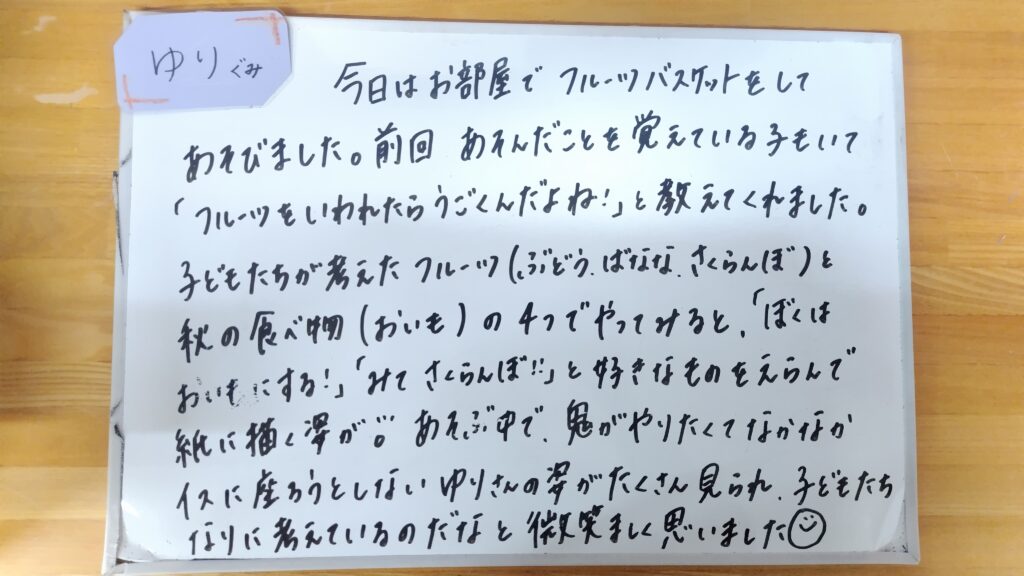 ゆりぐみ
今日はお部屋でフルーツバスケットをして
あそびました。前回 あそんだことを覚えている子もいて
「フルーツをいわれたらうごくんだよね!」と教えてくれました。
子どもたちが考えたフルーツ(ぶどう、ばなな、さくらんぼ)と
秋の食べ物(おいも)の4つでやってみると、「ぼくは
おいもにする!」「みて さくらんぼ!!」と好きなものをえらんで
紙に描く姿が。゛あそぶ中で、鬼がやりたくてなかなか
イスに座ろうとしないゆりさんの姿がたくさん見られ、子どもたち
なりに考えているのだなと微笑ましく思いました☺